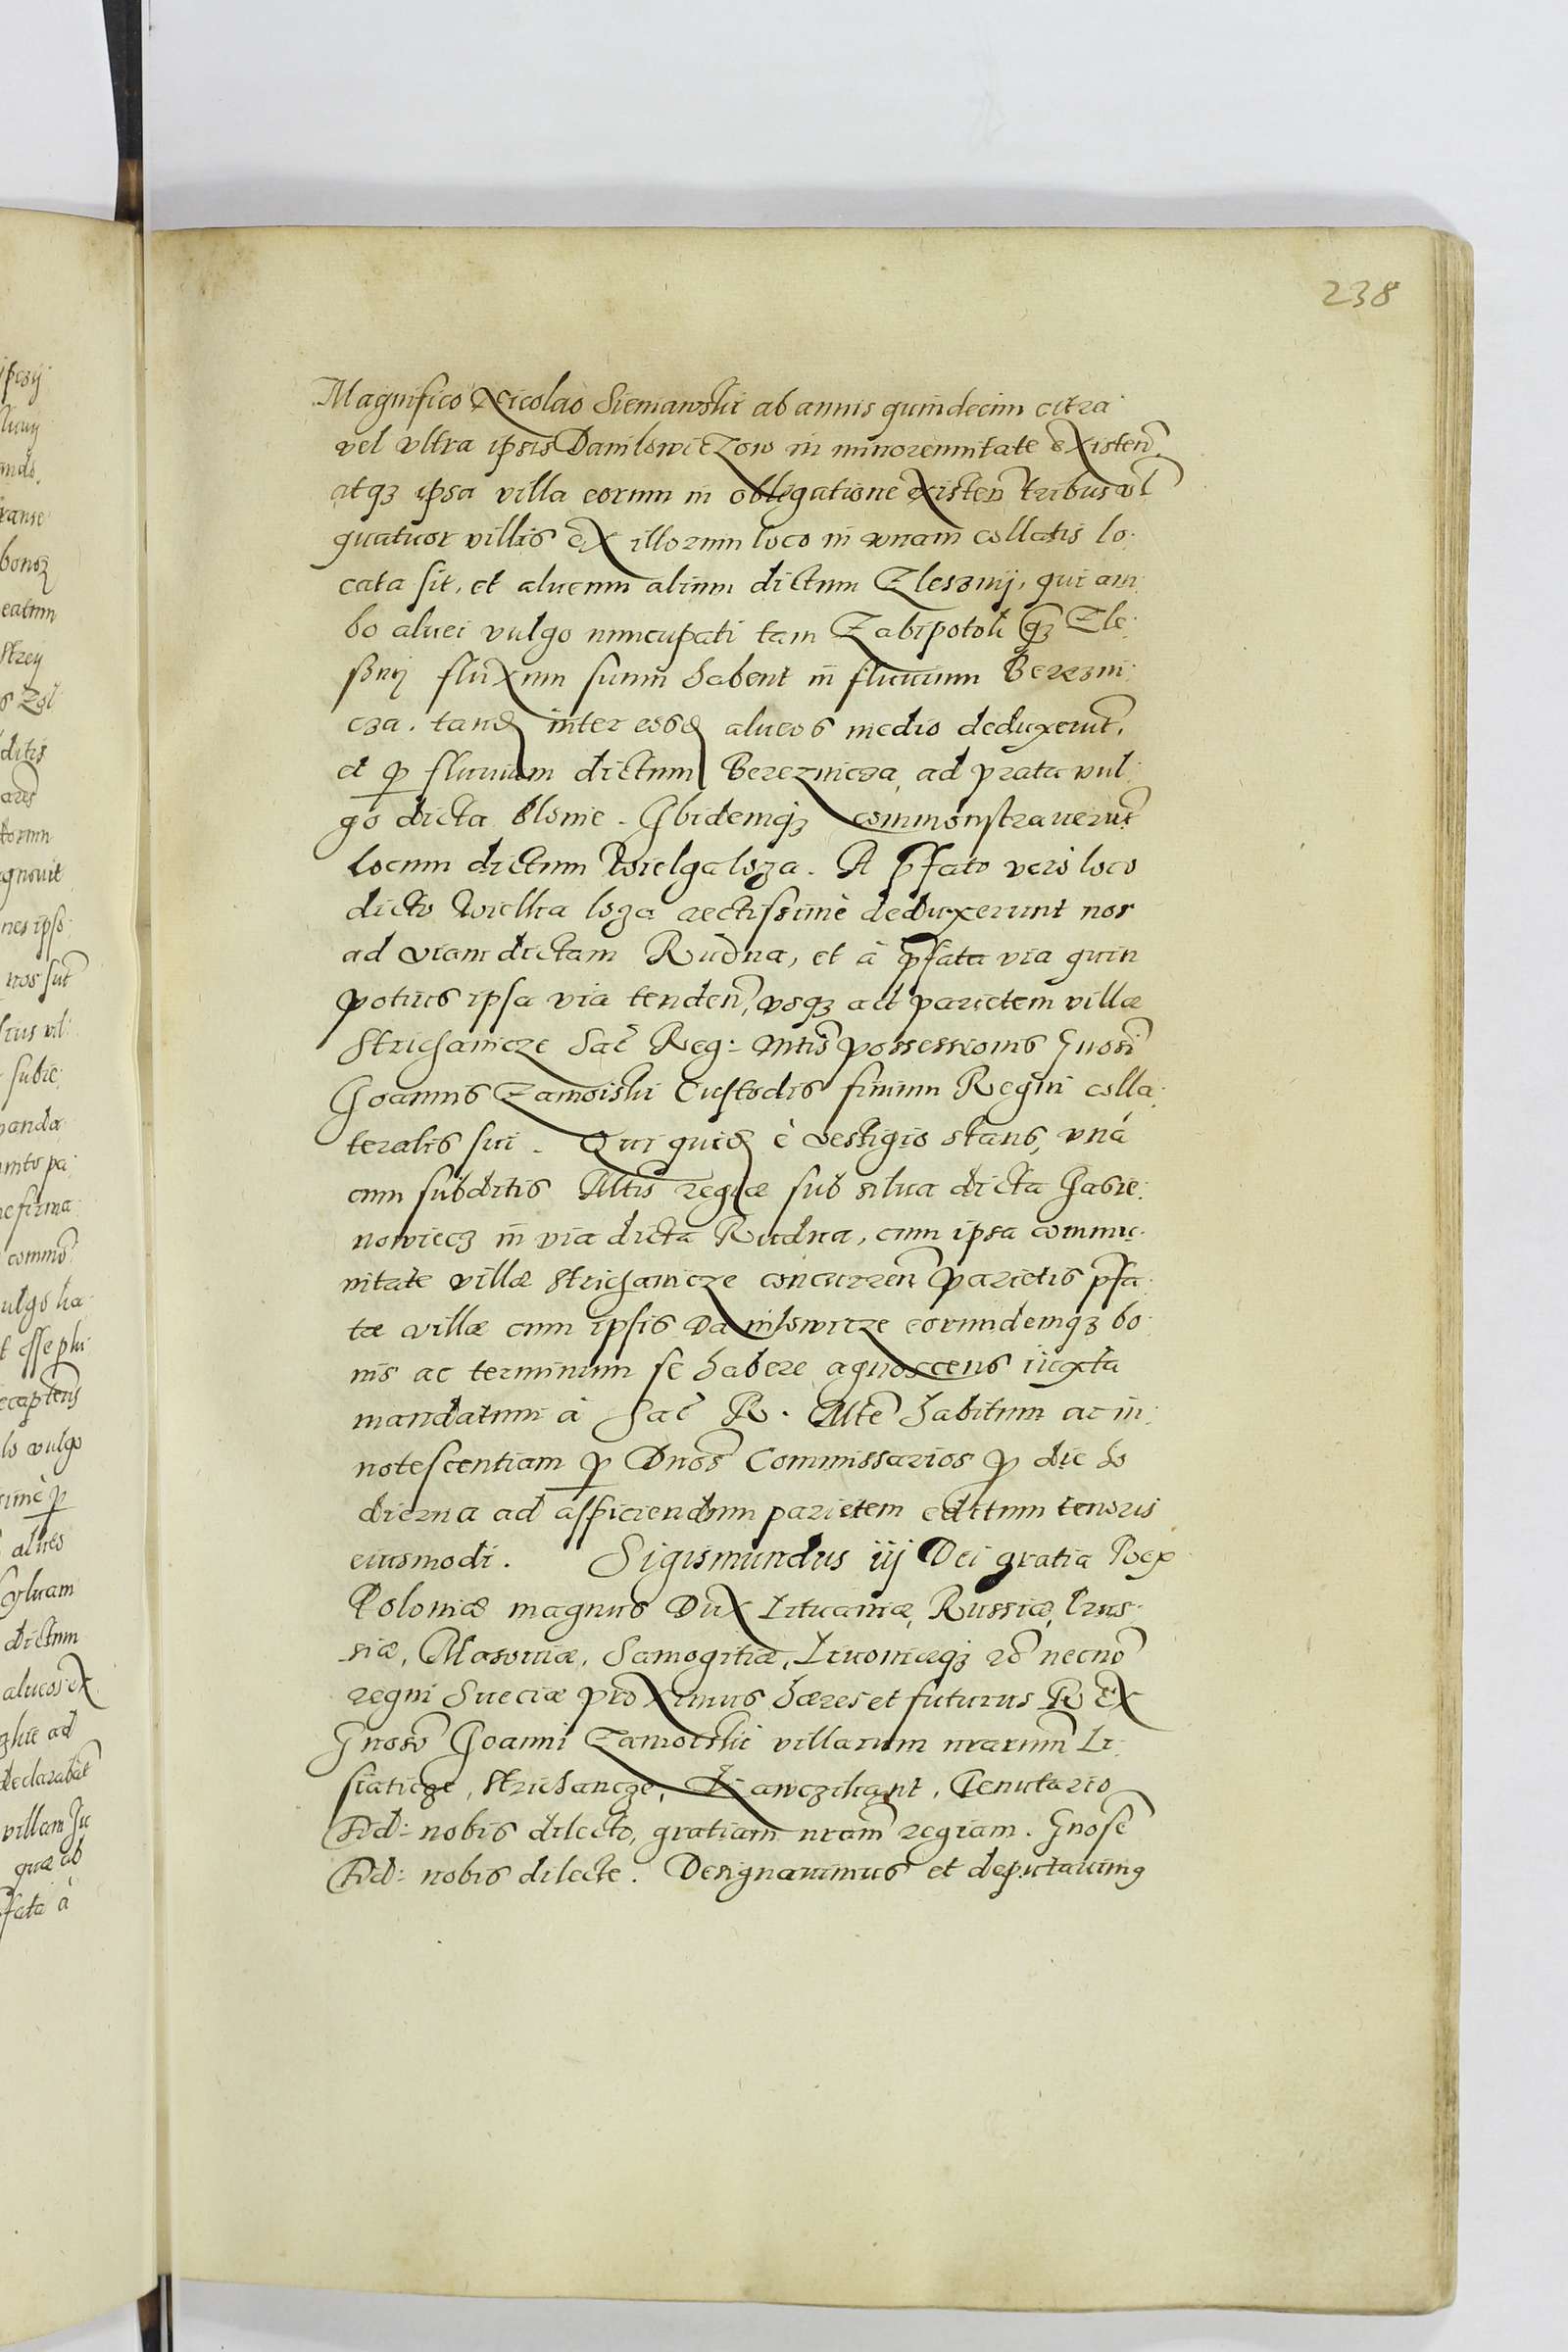 238
Magnifico Nicolao Sieniawski ab annis quindecim citra
vel vltra ipsis Danilowiczow in minorennitate existen̄
atqꝫ ipsa villa eorum in obligatione existen̄ tribus vl̄
quatuor villis ex illorum loco in vnam collatis lo:
cata sit, et alueum alium dictum Zlesznij, qui am
bo aluei vulgo nuncupati tam Zabipotok qꝫ Zle:
sznij fluxum suum habent in fluuium Berezni:
cza. tandē inter eosdē alueos medio deduxerūt,
et ꝑ fluuium dictum Berezniczа ad prata vul:
go dicta blonie. Ibidemqꝫ commonstrauerūt
locum dictum Wielga loza. A p̄fato vero loco
dicto Wielka loza rectissimè deduxerunt nos
ad viam dictam Rudna, et à p̄fata via quin
potius ipsa via tenden̄, vsqꝫ ad parietem villæ
Strichanicze Sac̄ Reg: Mtis̄ possessionis Gnosī
Joannis Zamoiski Custodis finium Regni colla:
teralis sui. Qui quidē è vestigio stans, vná
cum subditis Mtis̄ regiæ sub silua dicta Gabie:
nowiecz in via dicta Rudna, cum ipsa commu:
nitate villæ Strichanicze concurren̄ parietis p̄fa:
tæ villæ cum ipsis Danilowicze eorundemqꝫ bo:
nis ac terminum se habere agnoscens iuxta
mandatum à Sac̄ R. Mtē habitum ac in:
notescentiam ꝑ Dnos̄ Commissarios ꝓ die ho
dierna ad aspiciendum parietem editum tenoris
eiusmodi. Sigismundus iij Dei gratia Rex
Poloniæ magnus Dux Lituaniæ, Russiæ, Prus:
siæ, Masouiæ, Samogitiæ, Liuoniæqꝫ &c̄ necnō
regni Sueciæ proximus hæres et futurus REX
Gnosō Joanni Zamoiski villarum nrarum̄ Li:
siaticze, Strichancze, Tenutario
Fid: nobis dilecto, gratiam nram̄ regiam. Gnosē
Fid: nobis dilecte. Designauimus et deputauimꝰ